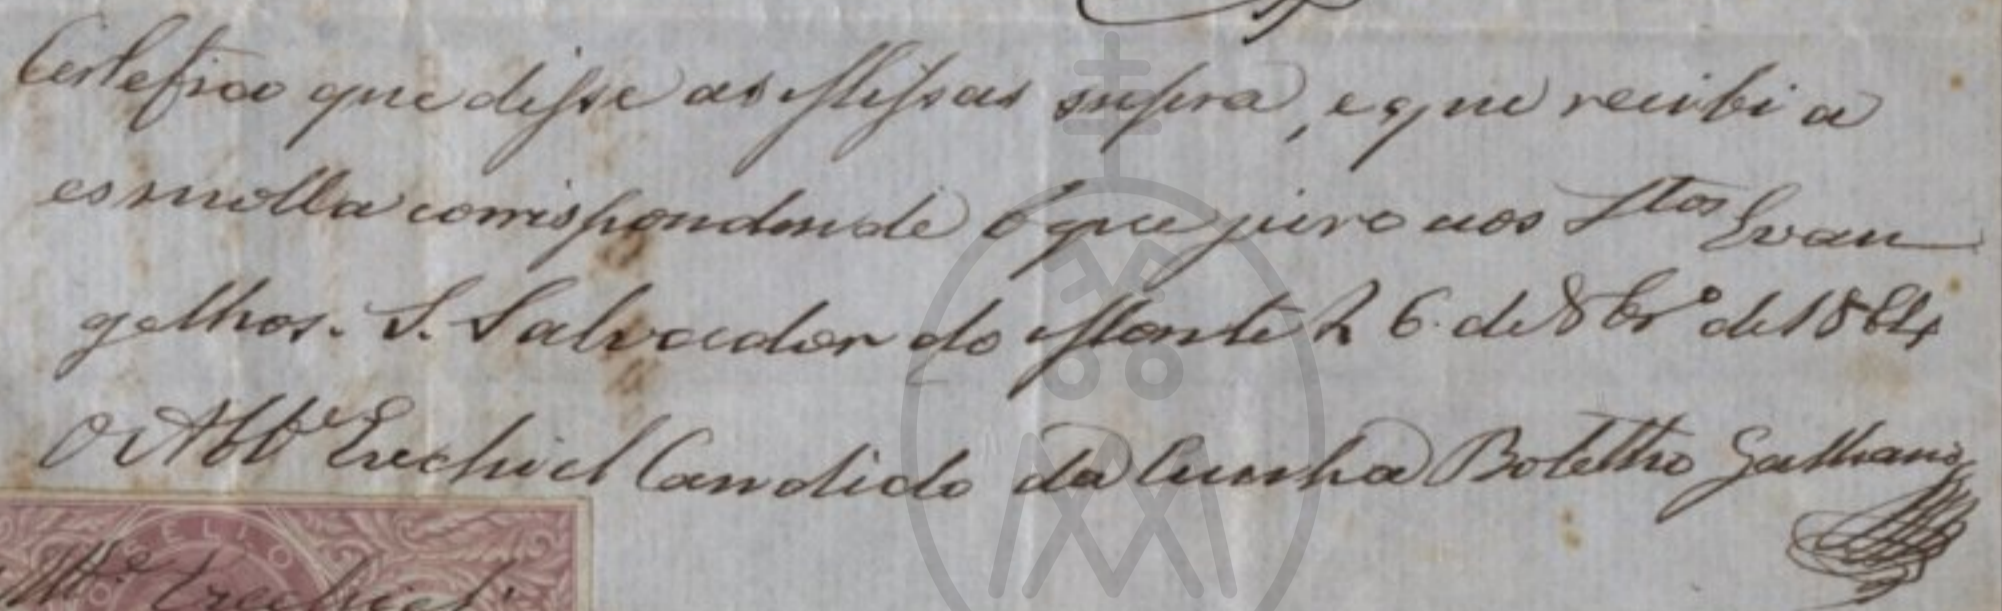 Certefico que disse as Missas supra, e que recibi a
esmolla correspondende o que juro aos Stos Evan
gelhos. S. Salvador do Monte 26 de 8brº de 1864
O Abbe Ezechiel Candido da Cunha Botelho Galhano
ELLO
Abbe Ezechiel